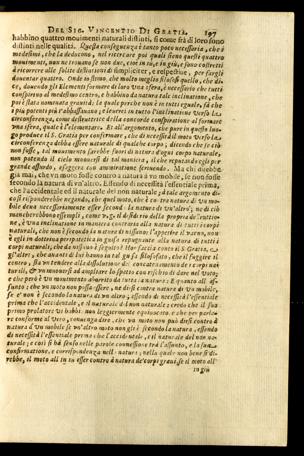 DEL SIG. VINCENTIO DI GRATIA. 197
habbino quattro mouimenti naturali distinti, si come frà di loro sono
distinti nelle qualità. Questa conseguenza è tanto poco necessaria, che i
medesimi, che la deducono, nel ricercare poi quali sieno questi quattro
mouimenti, non ne trouano se non due, cioè in sù, e in giù, e sono costretti
à ricorrere alle solite destintioni di simpliciter, e respectiue, per fargli
diuentar quattro. Onde io stimo, che molto meglio filosofi quello, che di-
ce, douendo gli Elementi formare di loro vna sfera, è necessario che tutti
conferino al medesimo centro, e habbino da natura tale inclinatione, che
poi è stata nominata grauità; la quale perche non è in tutti eguale, fà che
i più potenti più s'abbassino,
circonferenza, come
vna sfera, quale è l'elementare. Et all'argomento, che pure in questo luo-
go produce il S. Gratia per confermare, che di necessità il moto verso la
circonferenza debba essere naturale di qualche corpo; dicendo che se ciò
non fusse, tal mouimento sarebbe fuori di natura d'ogni corpo naturale,
non potendo il cielo mouersi di tal maniera, il che reputandogli per
grande assurdo, esaggera con ammiratione scriuendo. Ma chi direbbe
già mai, che vn moto fosse contro a natura à vn mobile, se non fosse
secondo la natura di vn'altro. Essendo di necessità l'essentiale prima,
che l'accidentale il naturale del non naturale; à tale argomento di-
cosi risponderebbe negando, che quel moto, che è contro nature di vn mo-
bile deua necessariamente esser secondo la natura de vn'altro; ne di ciò
mancherebbono essempli, come v.g. il disiderio della propria destruttio-
ne, è vna inclinatione in maniera contraria alla natura di tutti i corpi
naturali, che non è secondo la natura di nissuno: l'appetire il vacuo, non
è egli in dottrina peripatetica in guisa repugnante alla natura di tutti i
corpi naturali, che da nissuno è seguito? Hor faccia conto il S. Gratia, e
gl'altri, che ananti di lui hanno in tal guisa filosofato, che il fuggire il
centro, sia vn tendere alla dissolutione del concatenamento de corpi na-
turali, & vn mouersi ad ampliare lo spatio con rischio di dare nel voto;
e che però è vn mouimento aborrito da tutta la natura. Quanto all'as-
sunto; che vn moto non possa essere, ne dirsi contro natura di vn mobile,
se e' non è secondo la natura di vn altro, essendo di necessità l'essentiale
prima che l'accidentale, e il naturale del non naturale; credo che il suo
primo prolatore vi habbi non leggiermente equiuocato, e che per parla-
re conforme al vero, conuenga dire, che vn moto non può dirsi contro à
natura d'vn mobile se vn'altro moto non gli è secondo la natura, essendo
di necessità l'essentiale prima che l'accidentale, e il naturale del non na-
turale; e così si hà senso nelle parole connessione trà l'assunto, e la sua
confirmatione, e corrispondenza nella natura; nella quale non bene si di-
rebbe, il moto all'in su esser contro à natura de' corpi graui, se il moto all'
in giù